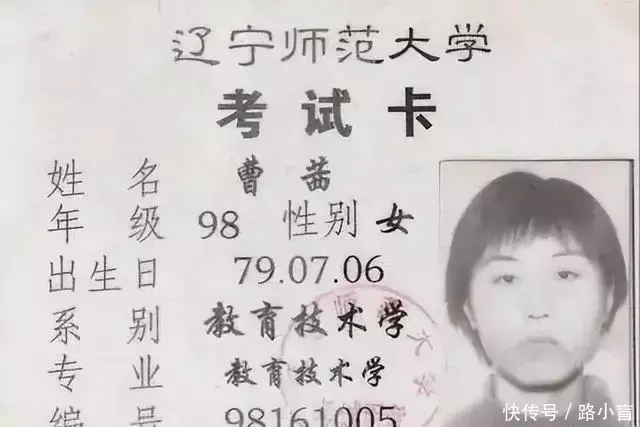 辽宁师范大学
考试卡
姓名 曹茜
年级 98 性别 女
出生日 79.07.06
系别 教育技术学
专业 教育技术学
编号 98161005
快传号/路小盲